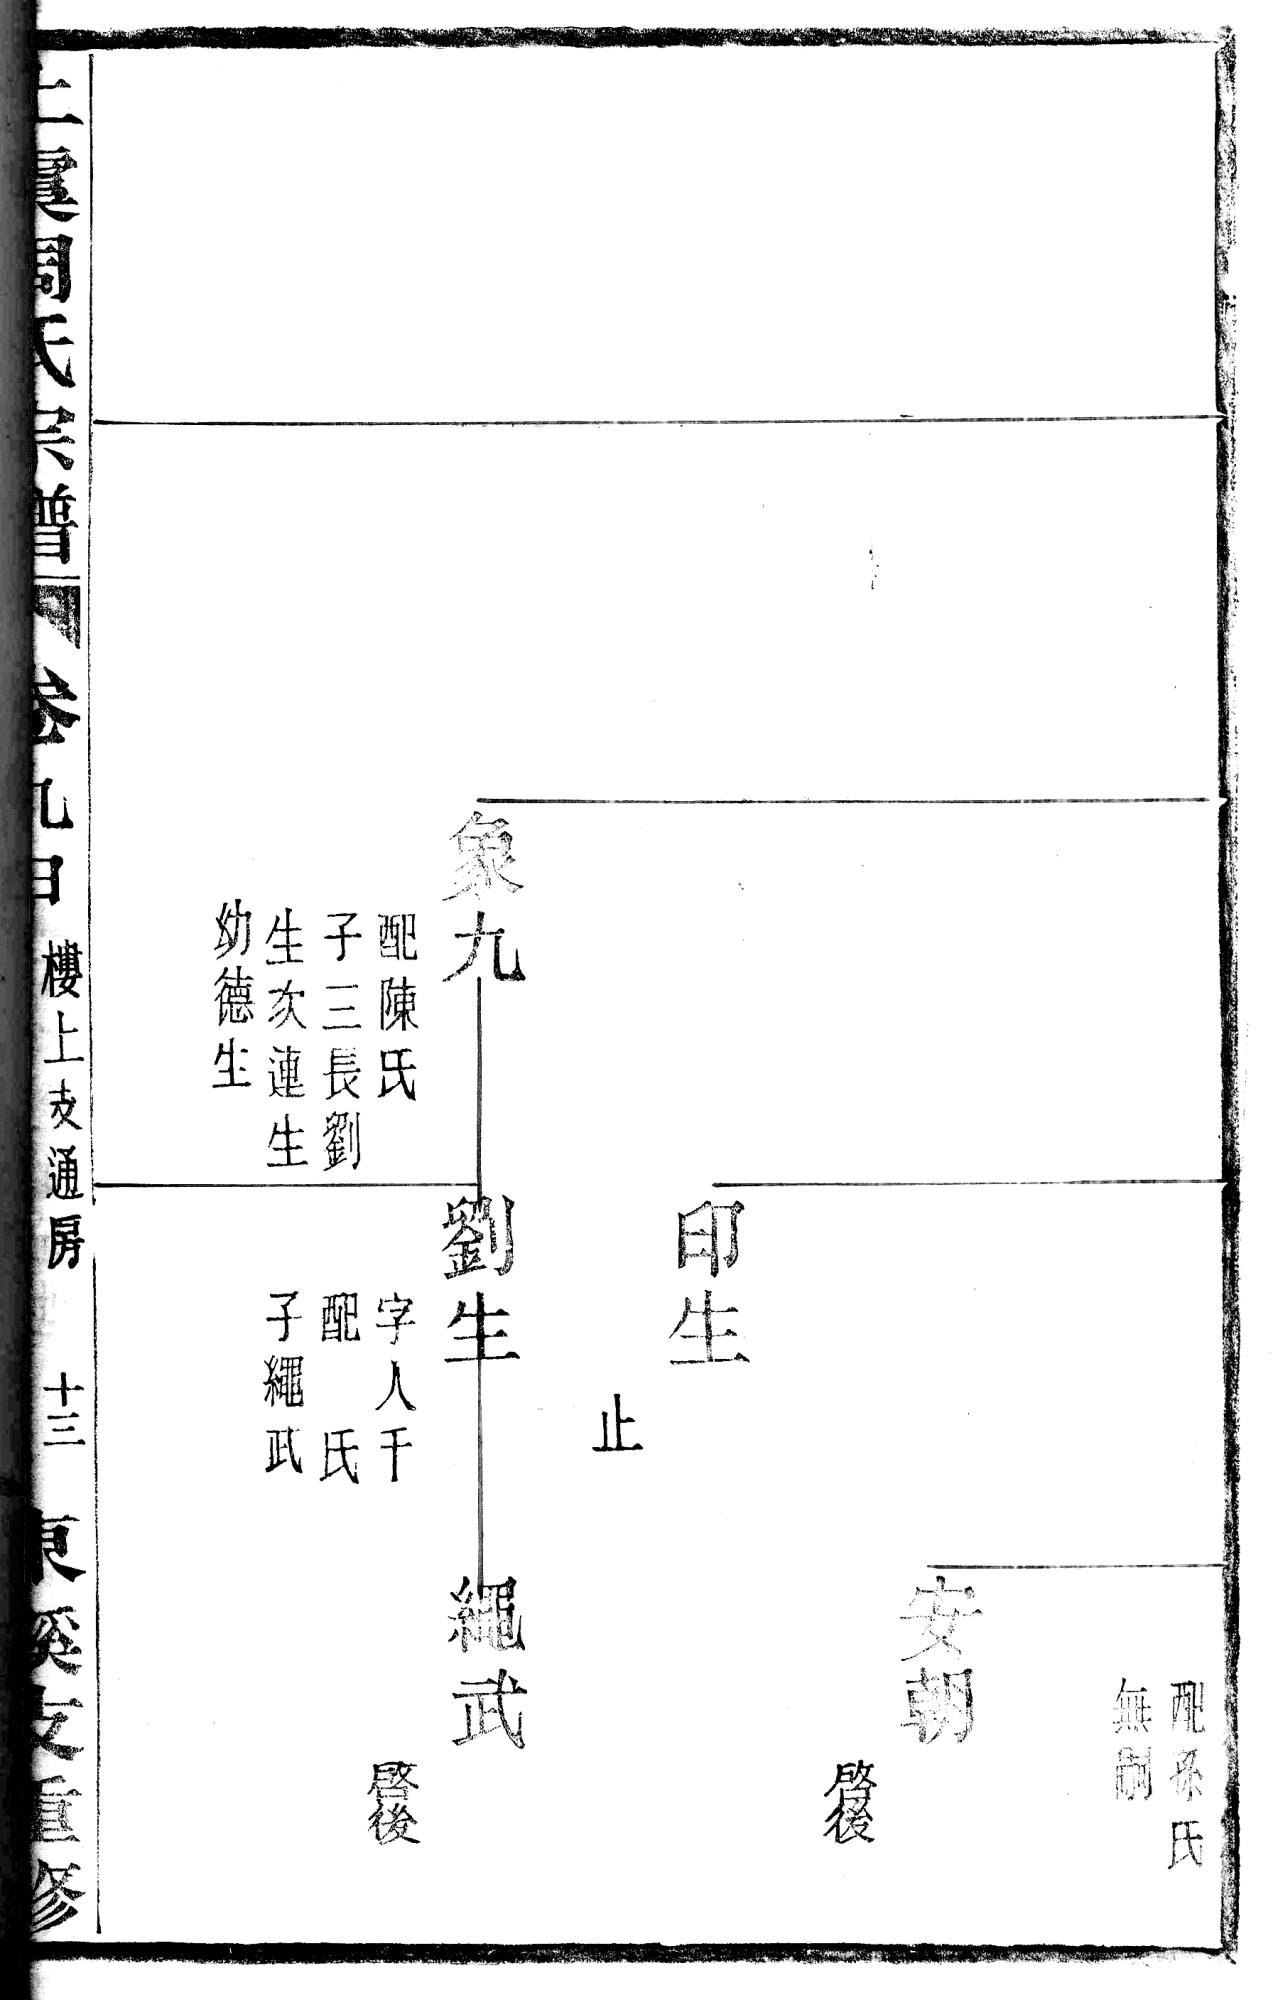 配孫氏
無嗣
安朝
啓後
印生
止
象九
配陳氏
子三長劉
生次連生
幼德生
劉生
字人千
配　氏
子繩武
繩武
啓後
上虞周氏宗譜
卷九曰
樓上支通房
十三
東溪支重修